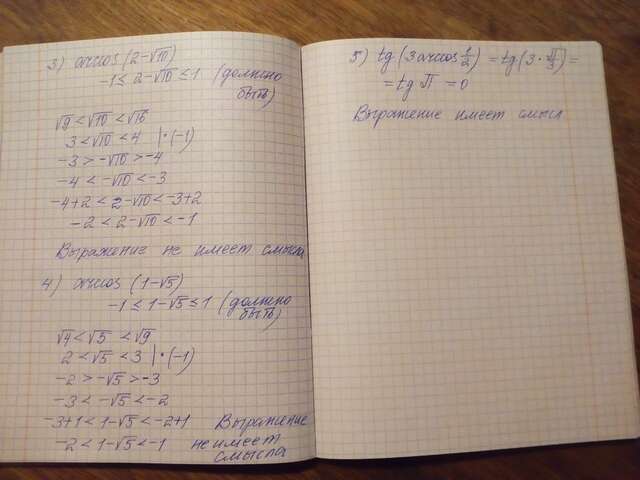 3) arccos (2-√10)
-1 ≤ 2-√10 ≤ 1 (должно
быть)
√9 < √10 < √16
3 < √10 < 4 | · (-1)
-3 > -√10 > -4
-4 < -√10 < -3
-4+2 < 2-√10 < -3+2
-2 < 2-√10 < -1
Выражение не имеет смысла
4) arccos (1-√5)
-1 ≤ 1-√5 ≤ 1 (должно
быть)
√4 < √5 < √9
2 < √5 < 3 | · (-1)
-2 > -√5 > -3
-3 < -√5 < -2
-3+1 < 1-√5 < -2+1 Выражение
-2 < 1-√5 < -1 не имеет
смысла
5) tg (3 arccos 1/2) = tg (3 · π/3) =
= tg π = 0
Выражение имеет смысл